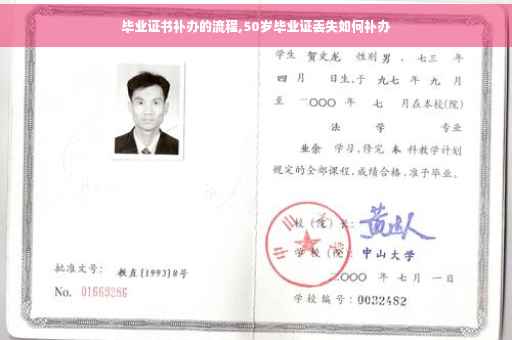 毕业证书补办的流程,50岁毕业证丢失如何补办
学生 贺文龙 性别 男 , 七三 年
四 月 日生,于 九七 年 九 月
至 二〇〇〇 年 七 月在本校(院)
法 学 专业
业余 学习,修完 本 科教学计划
规定的全部课程,成绩合格,准予毕业。
校 (院) 长:
学 校 (院): 中山大学
二〇〇〇 年 七 月 一 日
学校编号: 0032482
批准文号: 教直[1993]8号
No. 01669286
中山大学